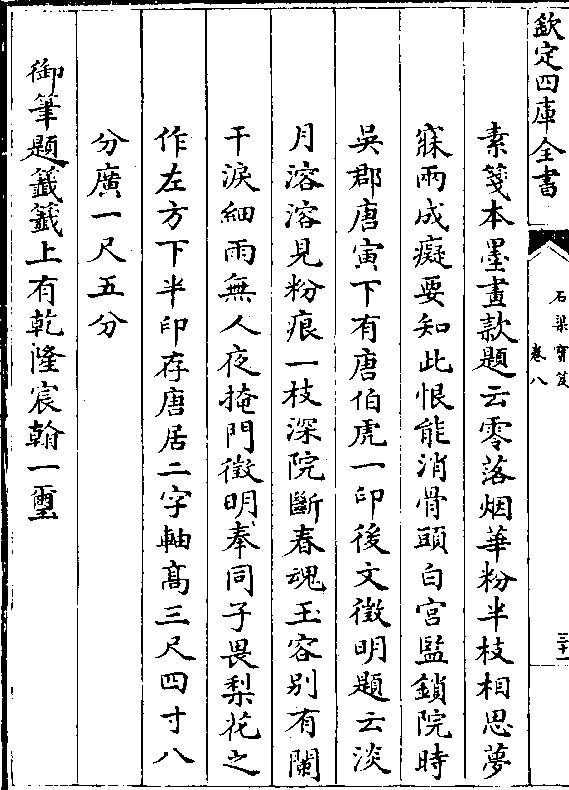 欽定四庫全書
石渠寳笈
卷八
三十一
素箋本墨畫款題云零落烟華粉半枝相思夢
寐雨成癡要知此恨能消骨頭白宮監鎖院時
吳郡唐寅下有唐伯虎一印後文徵明題云淡
月溶溶見粉痕一枝深院斷春魂玉容别有闌
干淚細雨無人夜掩門徵明奉同子畏梨花之
作左方下半印存唐居二字軸髙三尺四寸八
分廣一尺五分
御筆題籖籖上有乾隆宸翰一璽